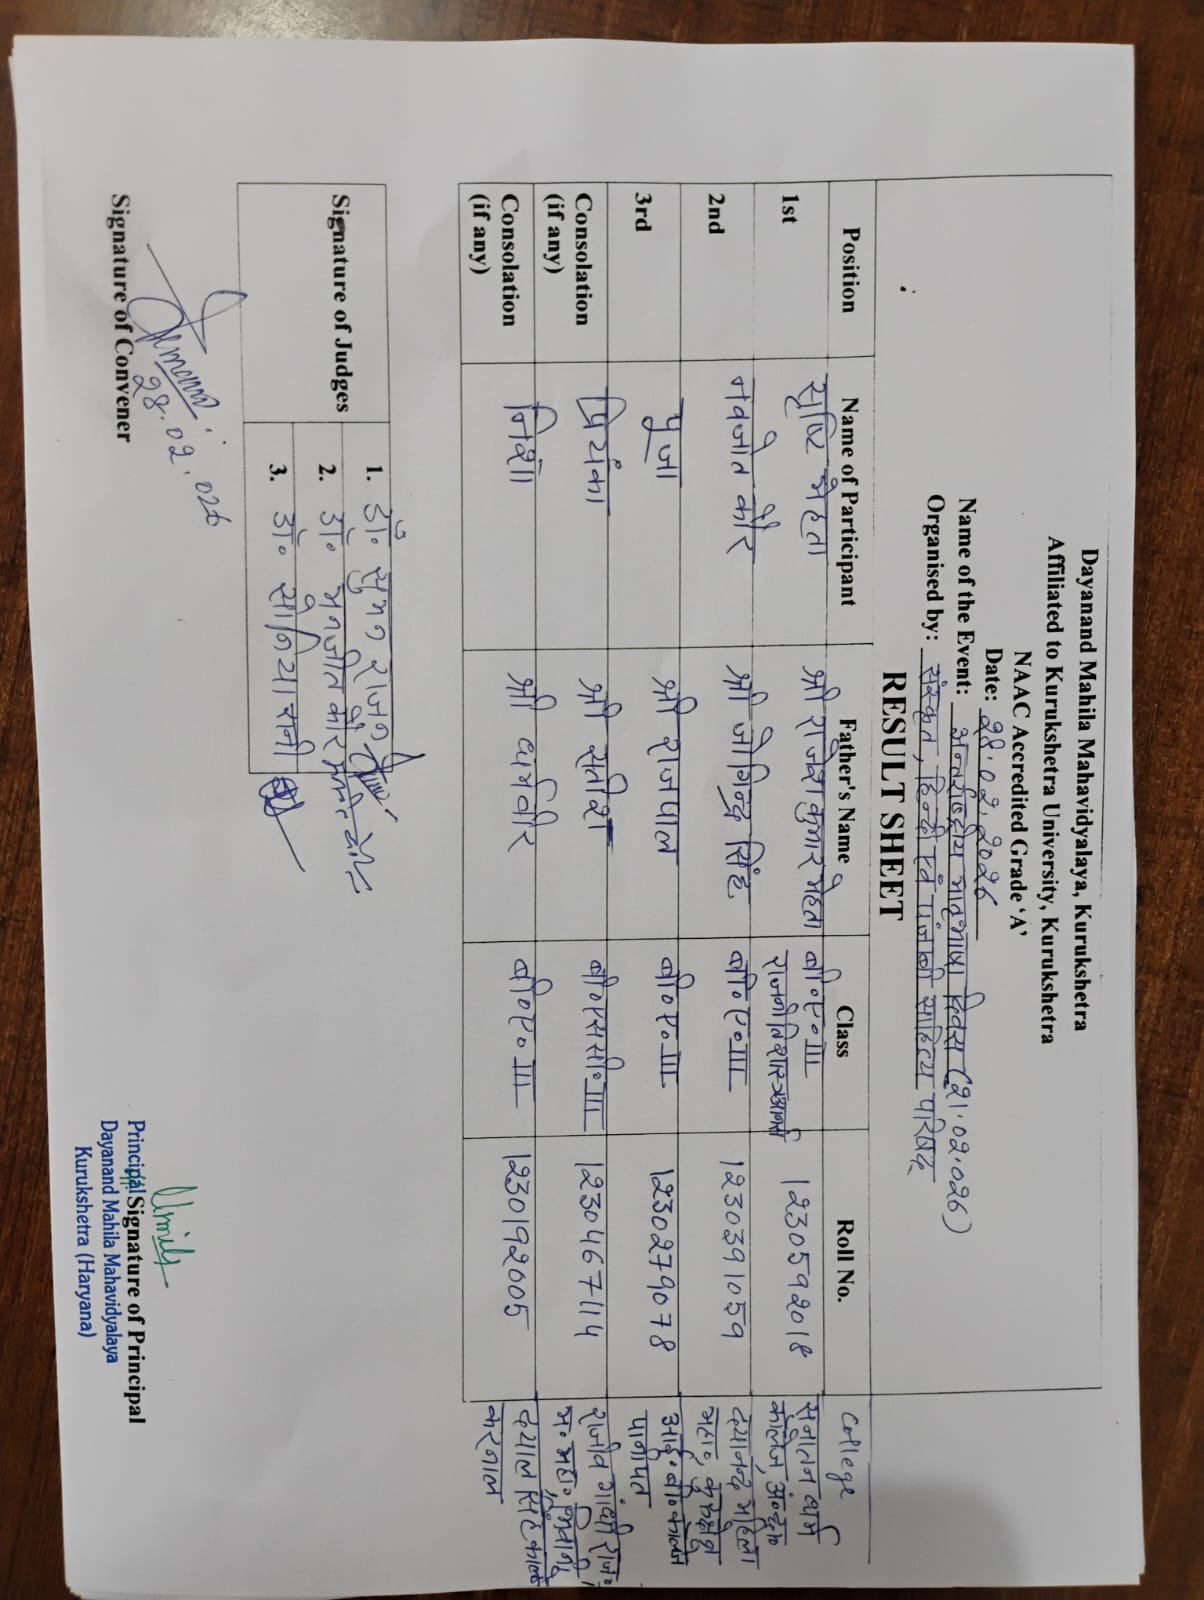 Dayanand Mahila Mahavidyalaya, Kurukshetra
Affiliated to Kurukshetra University, Kurukshetra
NAAC Accredited Grade 'A'
Date: 28.02.2026
Name of the Event: अन्तर्राष्ट्रीय मातृभाषा दिवस (21.02.026)
Organised by: संस्कृत, हिन्दी एवं पंजाबी साहित्य परिषद्
RESULT SHEET
Position Name of Participant Father's Name Class Roll No. College
1st सृष्टि मेहता श्री राजेश कुमार मेहता बी०ए० III 1230592018 सनातन धर्म
कालेज, अम्बाला
2nd नवजोत कौर श्री जोगिन्द्र सिंह. बी०ए० III 1230391059 दयानन्द महिला
महा०, कुरुक्षेत्र
3rd पूजा श्री राजपाल बी०ए० III 1230279078 आई०बी० कालेज
पानीपत
Consolation (if any) प्रियंका श्री सतीश बी०एस सी० III 1230467114 राजीव गांधी राज०
म० महा०, भिवानी
Consolation (if any) निशा श्री धर्मवीर बी०ए० III 1230192005 दयाल सिंह कालेज
करनाल
Signature of Judges
1. डॉ० सुमन राजन
2. डॉ० मनजीत कौर
3. डॉ० सोनिया रानी
28.02.026
Signature of Convener
Signature of Principal
Principal
Dayanand Mahila Mahavidyalaya
Kurukshetra (Haryana)